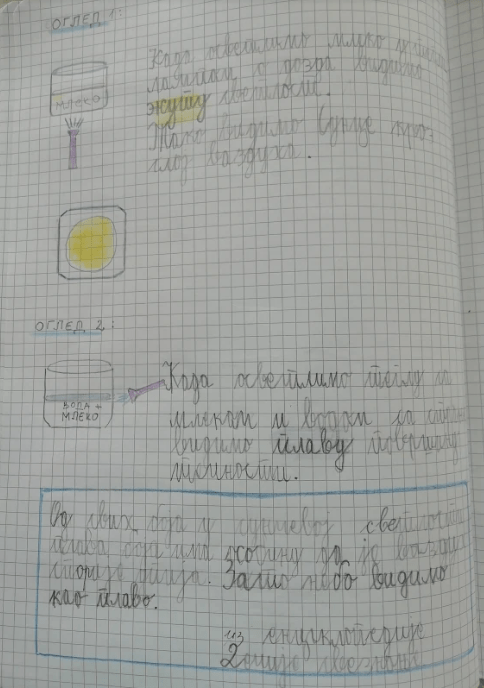 ОГЛЕД 1:
Када осветлимо млеко у
лампом о дозра видимо
жуту светлост.
МЛЕКО
Тако видимо Сунце кроз
слој ваздуха.
ОГЛЕД 2:
Када осветлимо теглу са
ВОДА +
МЛЕКО
млеком и водом са стране
видимо плаву површину
течности.
Од свих боја у сунчевој светлости
плава боја има особину да је ваздух
најјаче Зато небо видимо
као плаво.
из енциклопедије